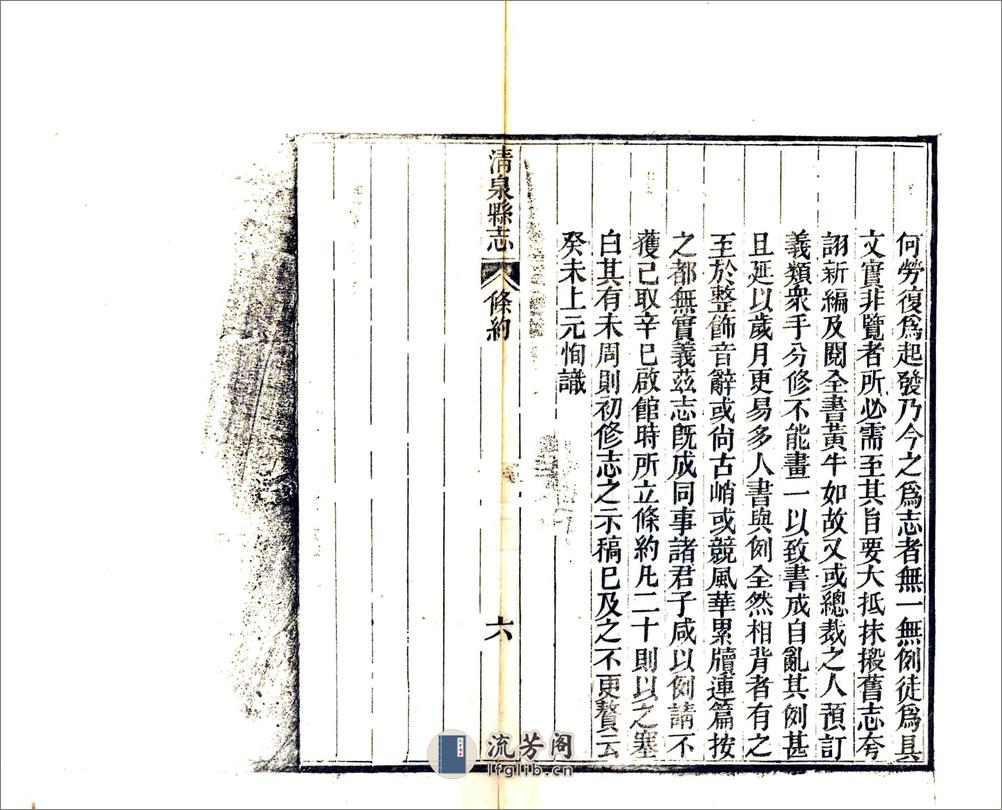 何勞復爲起發乃今之爲志者無一無例徒爲具
文實非覽者所必需至其旨要大抵抹搬舊志夸
詡新編及閱全書黃牛如故又或總裁之人預訂
義類衆手分修不能畫一以致書成自亂其例甚
且延以歲月更易多人書與例全然相背者有之
至於整飾音辭或尙古峭或競風華累牘連篇按
之都無實義茲志旣成同事諸君子咸以例請不
獲已取辛巳啟館時所立條約凡二十則以之塞
白其有未周則初修志之示稿已及之不更贅云
癸未上元恂識
淸泉縣志
條約
六
流芳阁
lfglib.cn